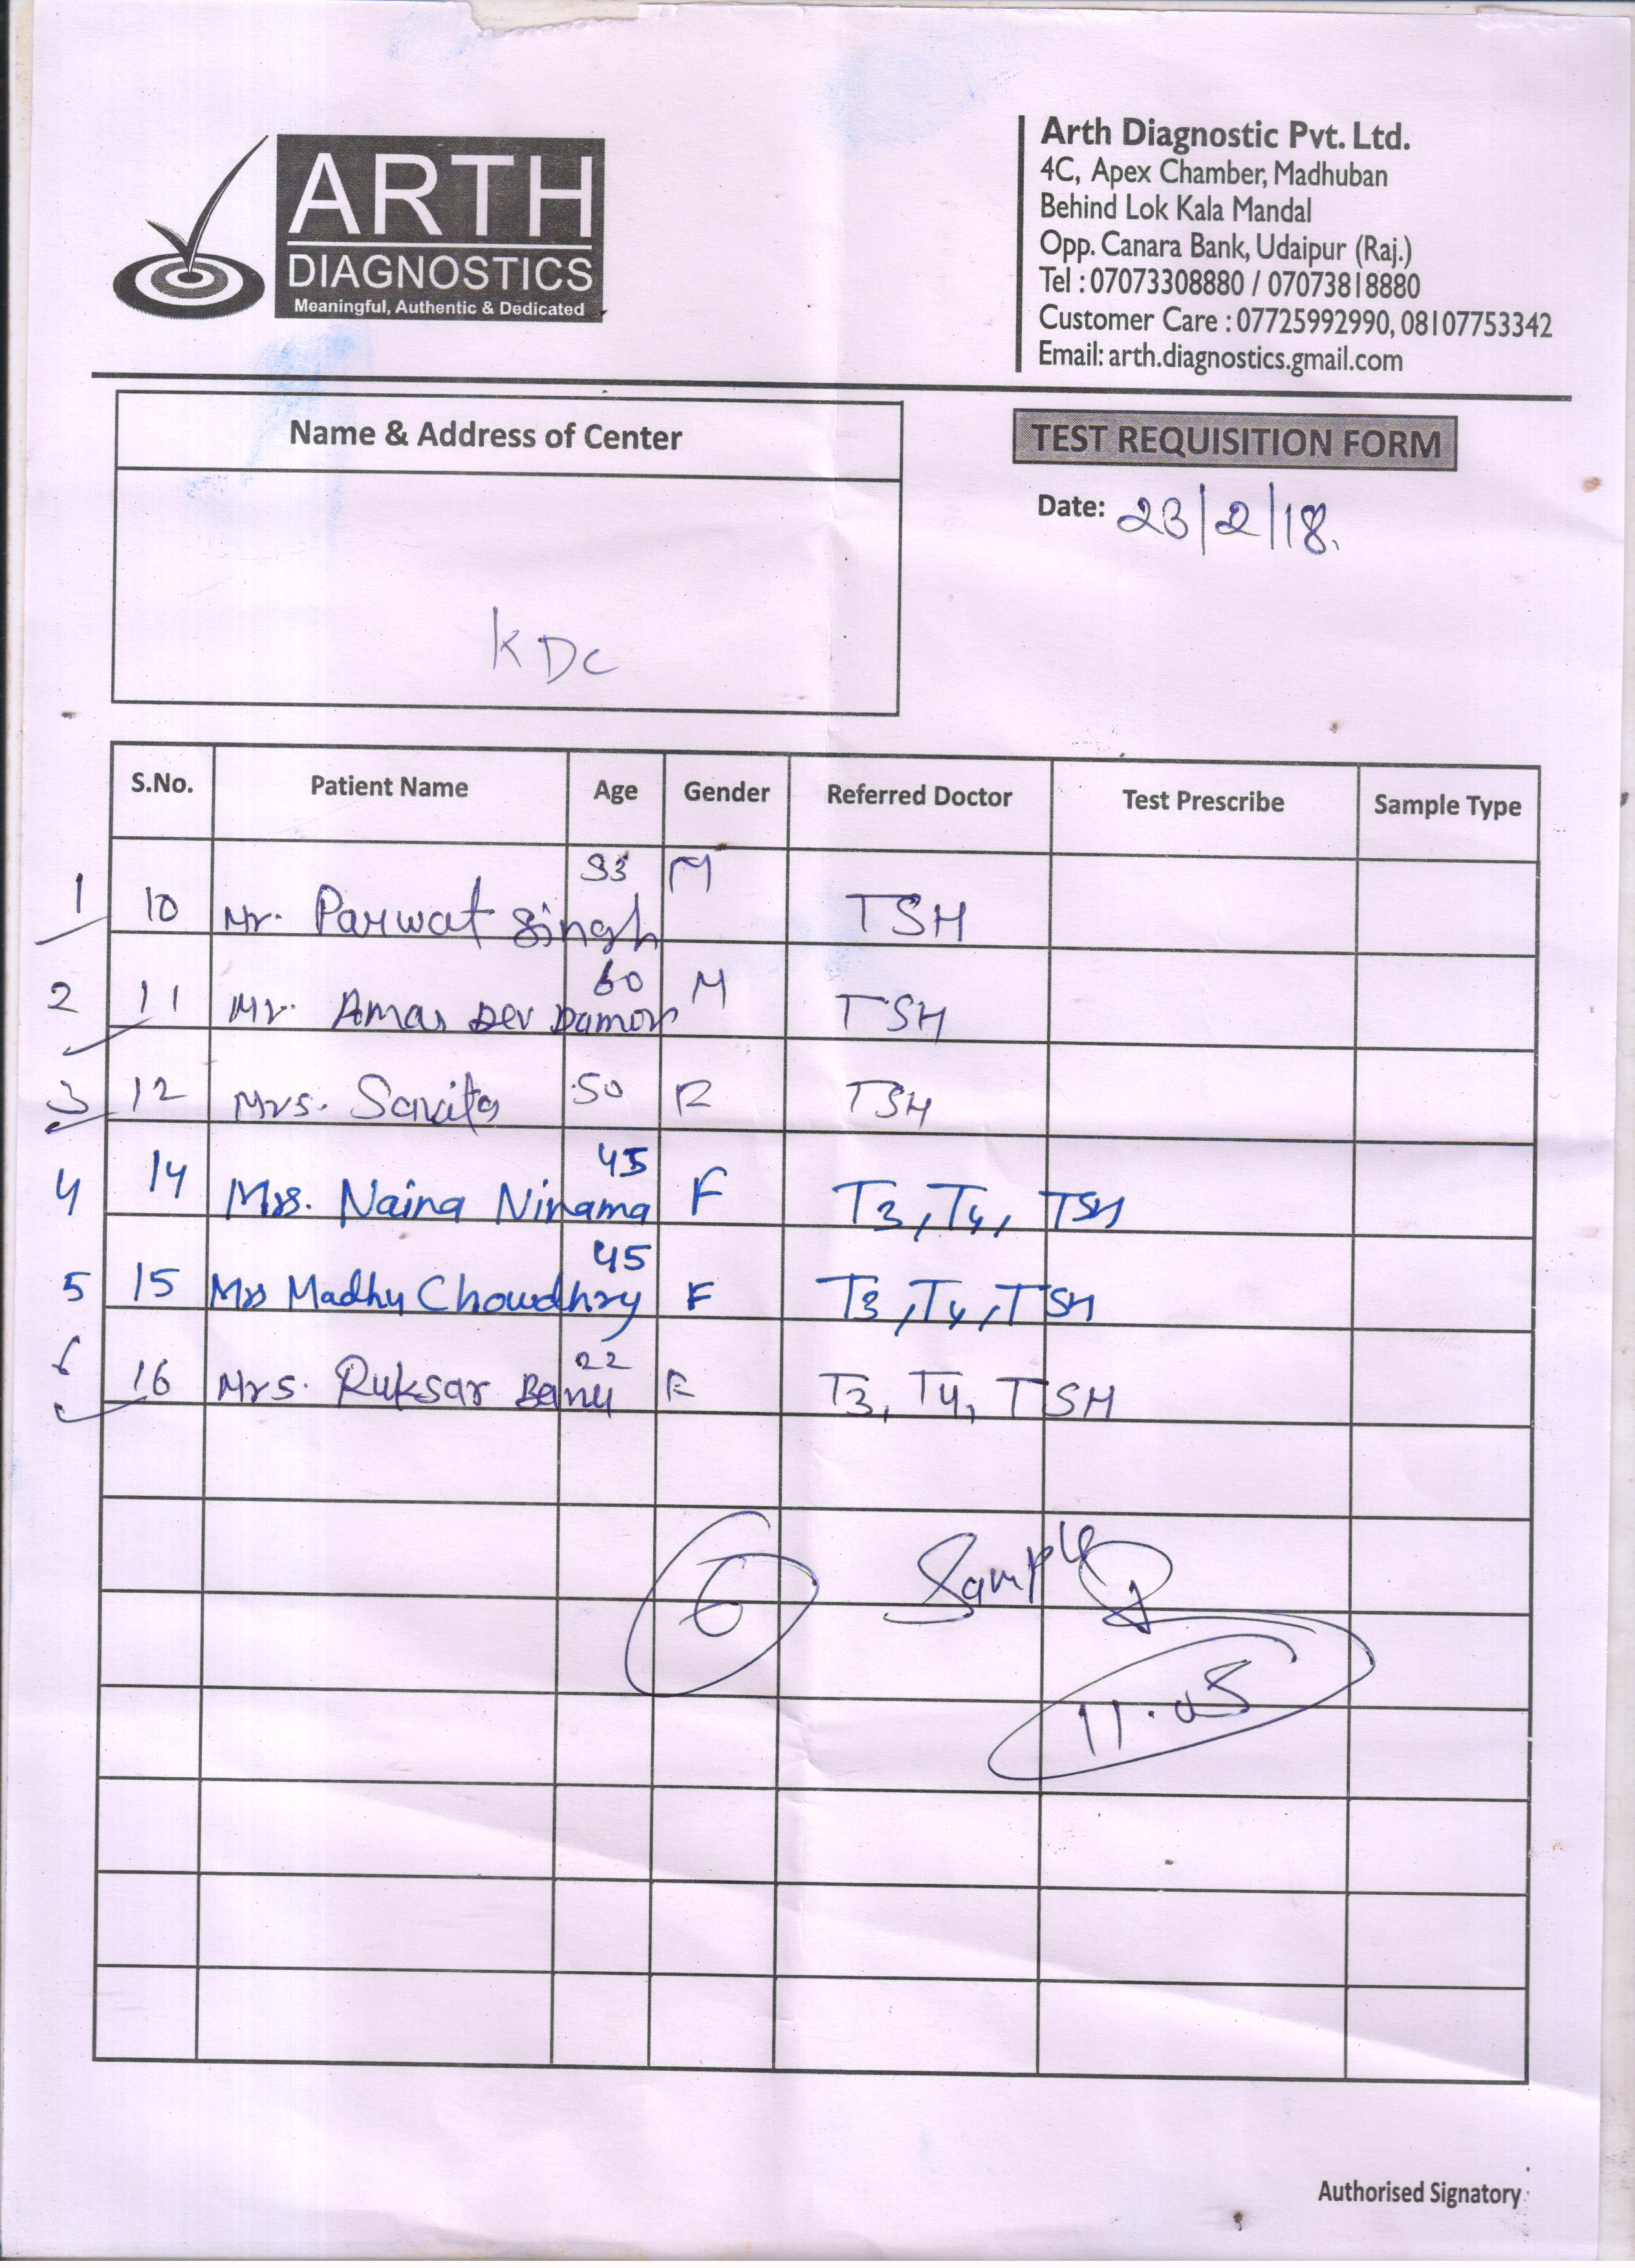 ARTH
DIAGNOSTICS
Meaningful, Authentic & Dedicated
Arth Diagnostic Pvt. Ltd.
4C, Apex Chamber, Madhuban
Behind Lok Kala Mandal
Opp. Canara Bank, Udaipur (Raj.)
Tel : 07073308880 / 07073818880
Customer Care : 07725992990, 08107753342
Email: arth.diagnostics.gmail.com
Name & Address of Center
KDC
TEST REQUISITION FORM
Date: 23/2/18.
S.No. Patient Name Age Gender Referred Doctor Test Prescribe Sample Type
1 10 Mr. Parwat Singh M TSH
2 11 Mr. Amar Dev Damor 60 M TSH
3 12 Mrs. Savita 50 F TSH
4 14 Mrs. Naina Ninama 45 F T3, T4, TSH
5 15 Mrs Madhu Chowdhry 45 F T3, T4, TSH
6 16 Mrs. Ruksar Banu 22 F T3, T4, TSH
6 Sample
11.05
Authorised Signatory